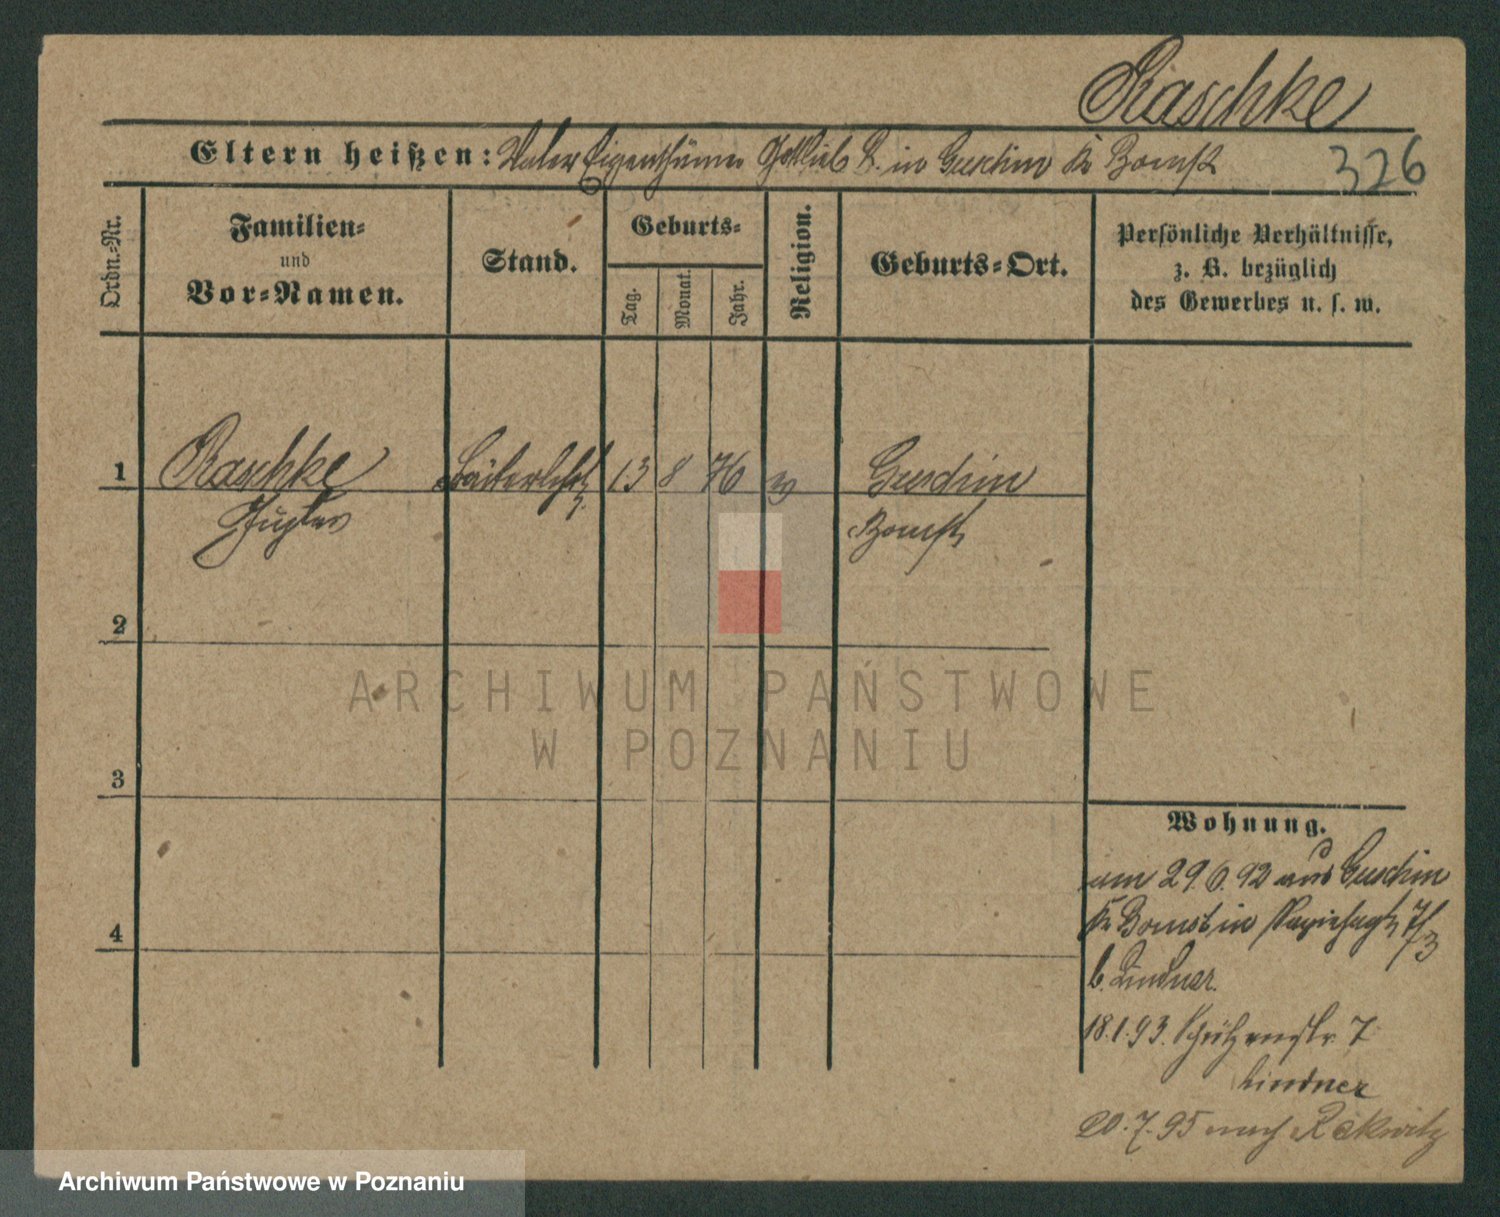 Raschke
Eltern heißen: Vater Eigenthümer Gottlieb R. in Guschin Kr Bomst
326
Ordn.-Nr.
Familien-
und
Vor-Namen.
Stand.
Geburts-
Tag.
Monat.
Jahr.
Religion.
Geburts-Ort.
Persönliche Verhältnisse,
z. B. bezüglich
des Gewerbes u. s. w.
1 Raschke 13 8 76 Guschin
Bomst
2
3
4
Wohnung.
am 29.6.92 aus Guschin
Kr Bomst in 7/3
b. Lindner.
18.1.93. Schützenstr. 7
Lindner
20.7.95 nach Rakwitz
ARCHIWUM PAŃSTWOWE
W POZNANIU
Archiwum Państwowe w Poznaniu